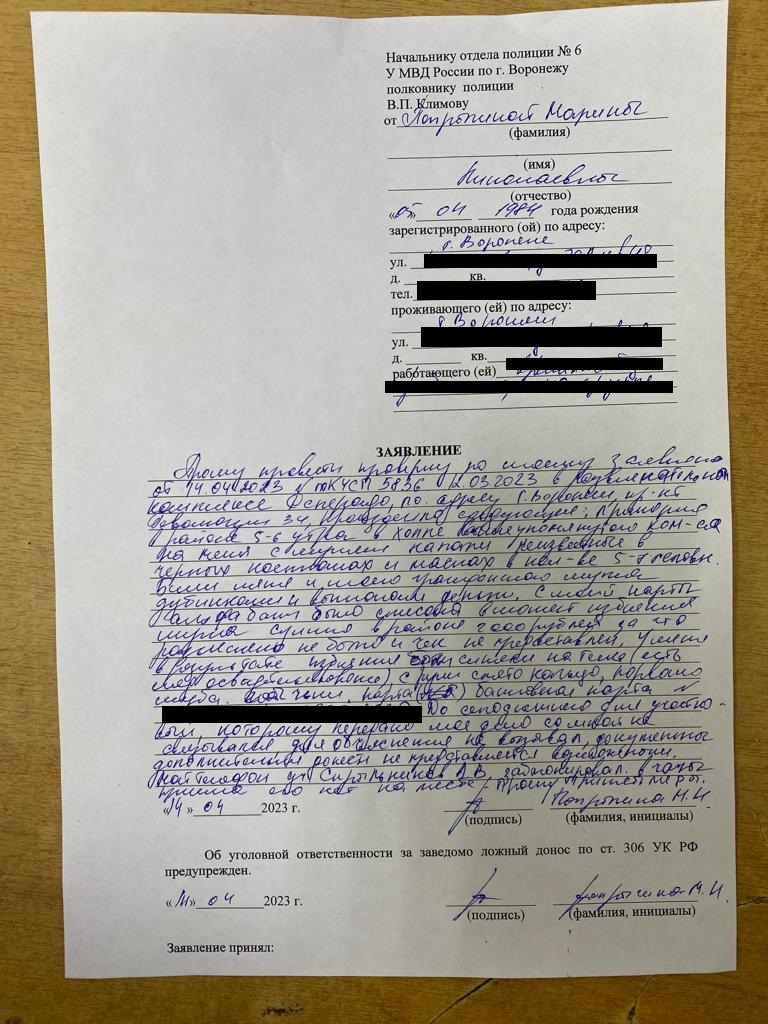 Начальнику отдела полиции № 6
У МВД России по г. Воронежу
полковнику полиции
В.П. Климову
от Марины
(фамилия)
(имя)
Николаевны
(отчество)
«05» 04 1984 года рождения
зарегистрированного (ой) по адресу:
г. Воронеж
ул.
д. кв.
тел.
проживающего (ей) по адресу:
г. Воронеж
ул.
д. кв.
работающего (ей)
ЗАЯВЛЕНИЕ
Прошу провести проверку по моему заявлению
от 14.04.2023 5836 12.03.2023 в развлекательном
комплексе по адресу г. Воронеж, пр-кт
Революции 34, следующее: Примерно
в районе 5-6 утра в холле вышеупомянутого ком-са
на меня с напали неизвестные в
черных костюмах и масках в кол-ве 5-7 человек.
Били меня и моего гражданского мужа
дубинками и деньги. С моей карты
Альфа банк было списано в момент избиения
сумма в районе 2000 рублей за что
не было и чек не предоставлен. У меня
в результате избиения синяки на теле (есть
), с руки снято кольцо, порвана
шуба. карта банковская карта №
До сегодняшнего дня участко-
вый, которому передано мое дело со мной не
связывался для объяснения не вызывал, документы
дополнительные донести не представляется возможным.
Мой телефон уч. А.В. заблокировал. в часы
приема его нет на месте. Прошу принять меры.
«14» 04 2023 г. М.Н.
(подпись) (фамилия, инициалы)
Об уголовной ответственности за заведомо ложный донос по ст. 306 УК РФ
предупрежден.
«14» 04 2023 г. М.Н.
(подпись) (фамилия, инициалы)
Заявление принял: